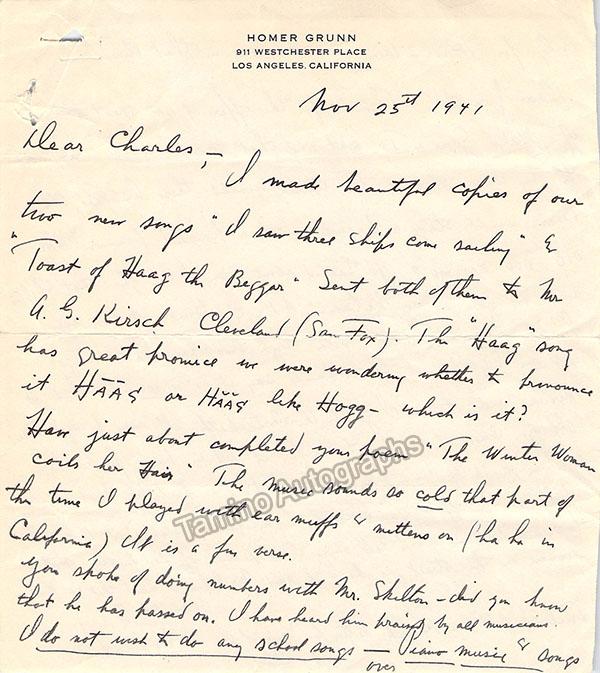 HOMER GRUNN
911 WESTCHESTER PLACE
LOS ANGELES, CALIFORNIA
Nov 25st 1941
Dear Charles, —
I made beautiful copies of our
two new songs "I saw three ships come sailing" &
"Toast of Haag the Beggar" Sent both of them to Mr
A. G. Kirsch Cleveland (Sam Fox). The "Haag" song
has great promice we were wondering whether to pronounce
it HĀĀG or HĂĂG like Hogg — which is it?
Have just about completed your poem "The Winter Woman
coils her Hair" The music sounds so cold that part of
the time I played with ear muffs & mittens on (ha ha in
California) It is a fine verse.
You spoke of doing numbers with Mr. Skelton — did you know
that he has passed on. I have heard him praised by all musicians.
I do not wish to do any school songs — Piano music & songs
over
Tamino Autographs